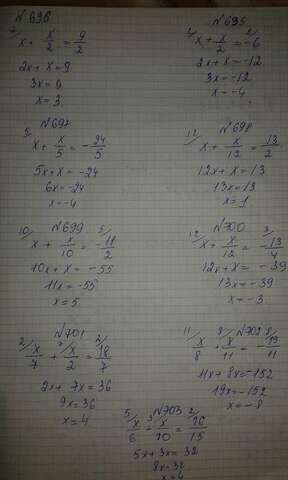 №696
2/ x + x/2 = 9/2
2x + x = 9
3x = 9
x = 3
№695
2/ x + x/2 = 2/ -6
2x + x = -12
3x = -12
x = -4
№697
5/ x + x/5 = -24/5
5x + x = -24
6x = -24
x = -4
№698
12/ x + x/12 = 13/2
12x + x = 13
13x = 13
x = 1
№699
10/ x + x/10 = 5/ -11/2
10x + x = -55
11x = -55
x = 5
№700
12/ x + x/12 = 3/ -13/4
12x + x = -39
13x = -39
x = -3
№701
2/ x/7 + 7/ x/2 = 2/ 18/7
2x + 7x = 36
9x = 36
x = 4
№702
11/ x/8 + 8/ x/11 = 8/ -19/11
11x + 8x = -152
19x = -152
x = -8
№703
5/ x/6 + 3/ x/10 = 2/ 16/15
5x + 3x = 32
8x = 32
x = 4